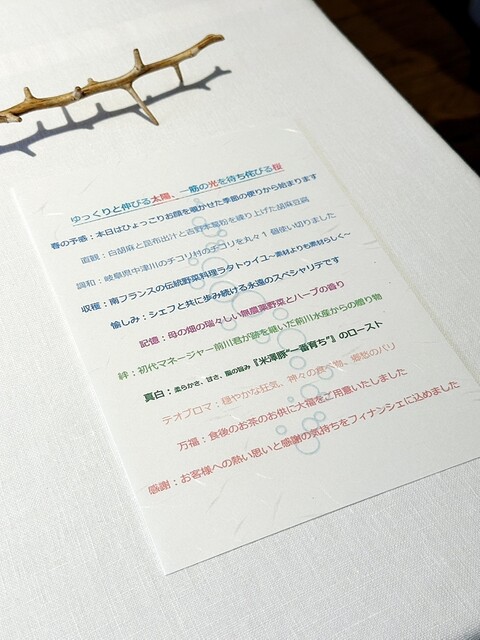 ゆっくりと伸びる太陽、一筋の光を待ち侘びる桜
春の予感：本日はひょっこりお顔を覗かせた季節の便りから始まります
直観：白胡麻と昆布出汁と吉野本葛粉を練り上げた胡麻豆腐
調和：岐阜県中津川のチコリ村のチコリを丸々1個使い切りました
収穫：南フランスの伝統野菜料理ラタトゥイユ～素材よりも素材らしく～
愉しみ：シェフと共に歩み続ける永遠のスペシャリテです
記憶：母の畑の瑞々しい無農薬野菜とハーブの香り
絆：初代マネージャー前川君が跡を継いだ前川水産からの贈り物
真白：柔らかさ、甘さ、脂の旨み『米澤豚“一番育ち”』のロースト
テオブロマ：穏やかな狂気、神々の食べ物、郷愁のパリ
万福：食後のお茶のお供に大福をご用意いたしました
感謝：お客様への熱い思いと感謝の気持ちをフィナンシェに込めました